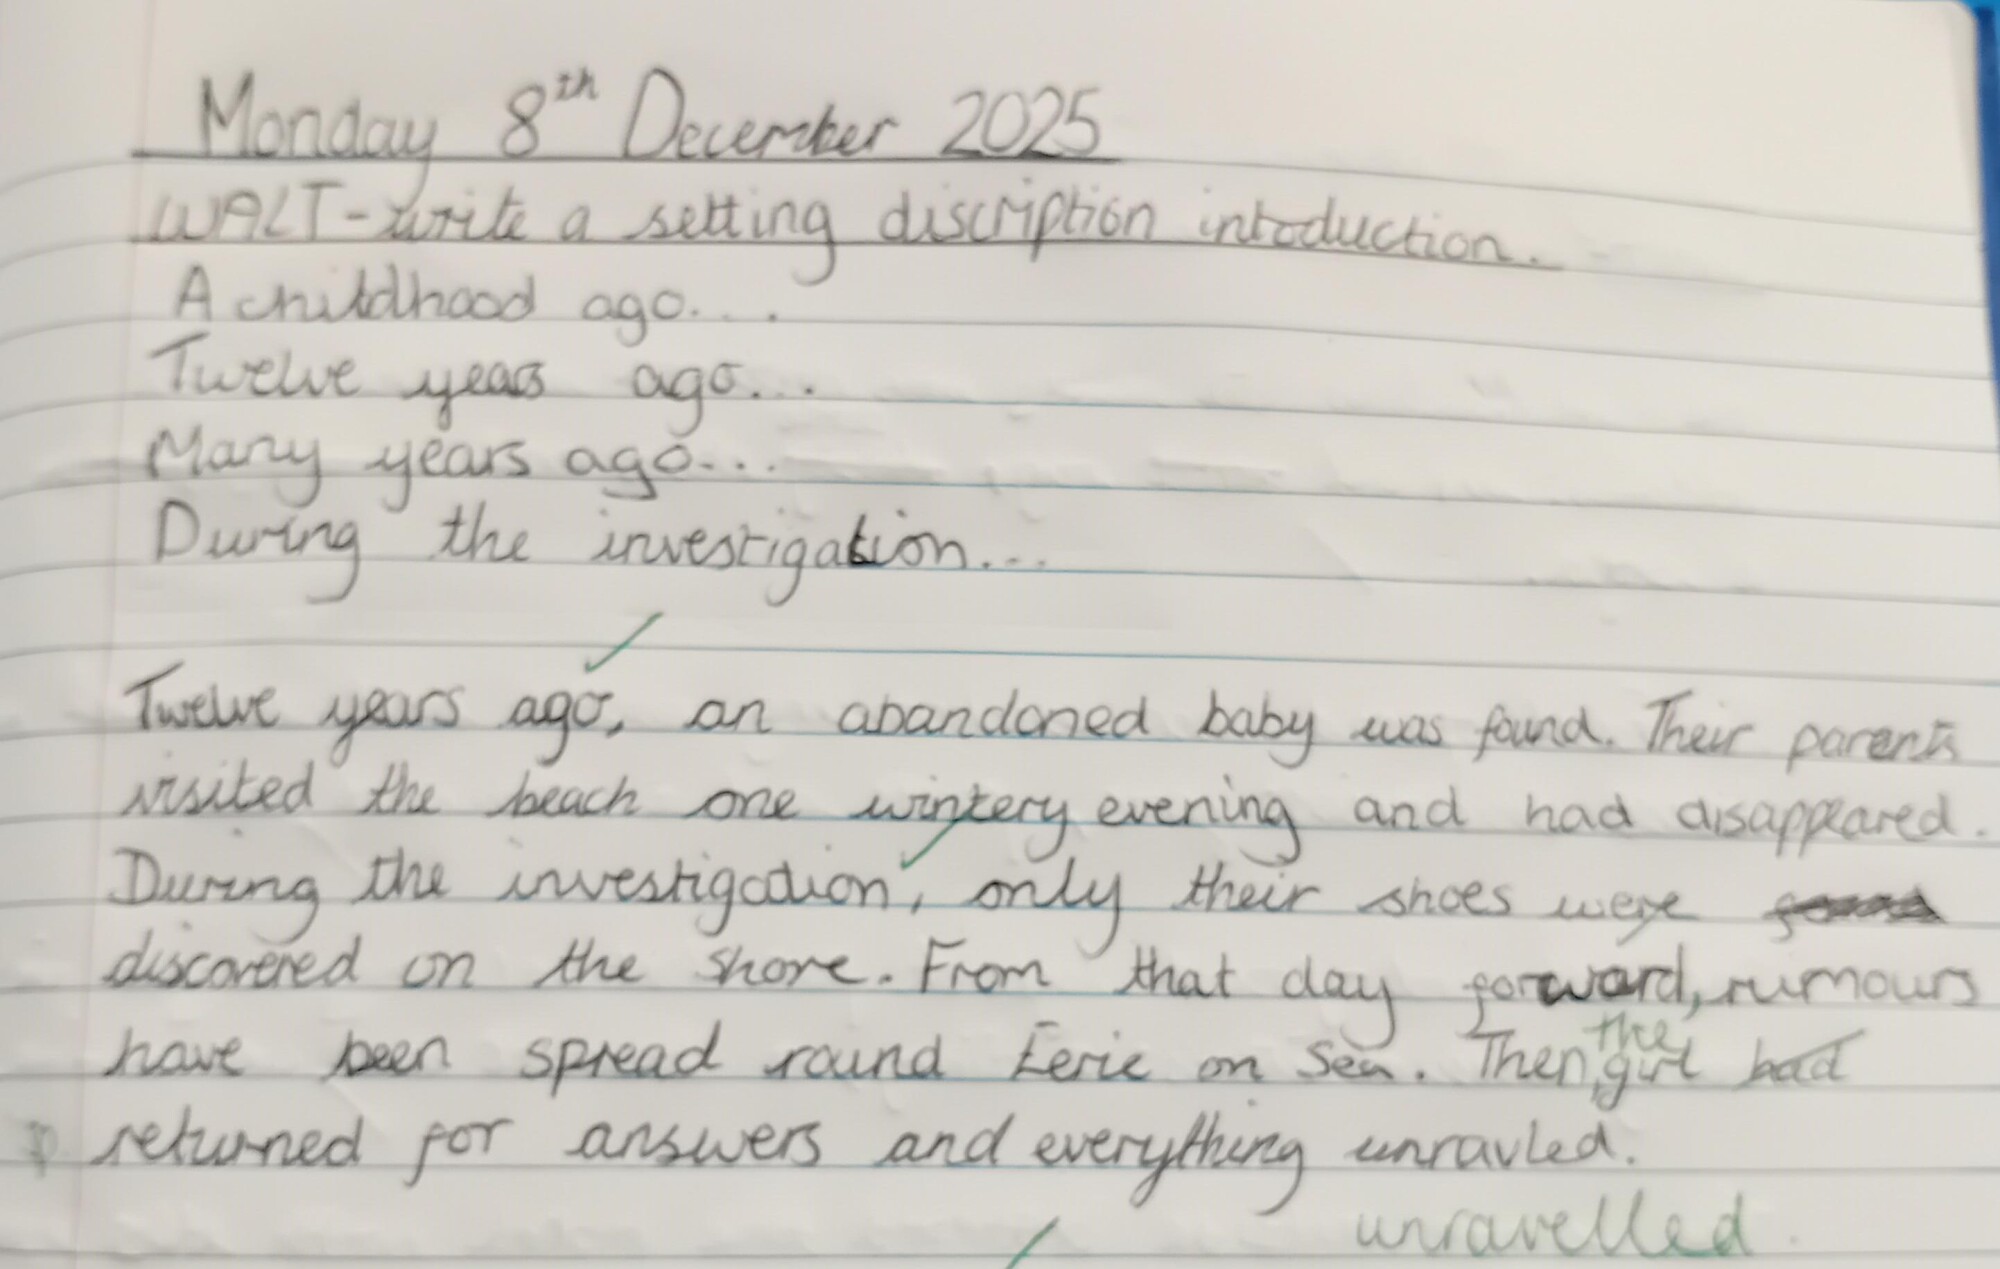 Monday 8th December 2025
WALT - write a setting discription intoduction.
A childhood ago....
Twelve years ago...
Many years ago...
During the investigation...
Twelve years ago, an abandoned baby was found. Their parents
visited the beach one wintery evening and had disappeared.
During the investigation, only their shoes were
discovered on the shore. From that day forward, rumours
have been spread round Eerie on Sea. Then, the girl had
returned for answers and everything unravled.
unravelled.